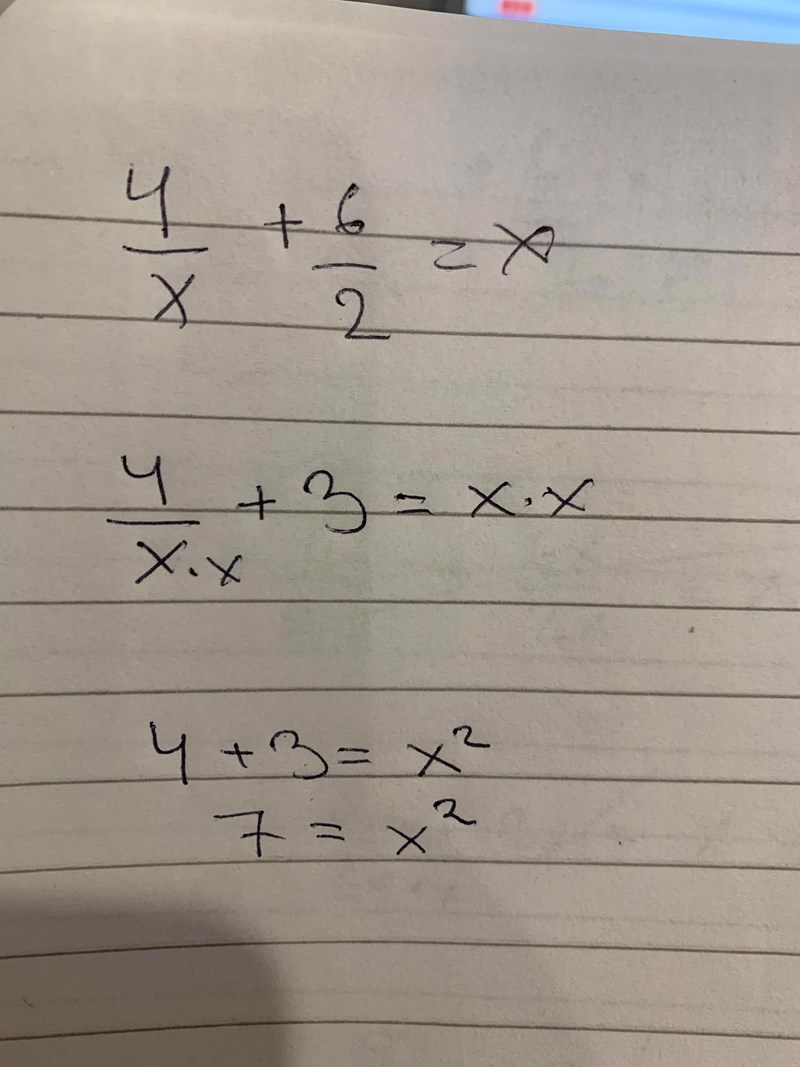 4/x + 6/2 = x
4/x·x + 3 = x·x
4 + 3 = x²
7 = x²